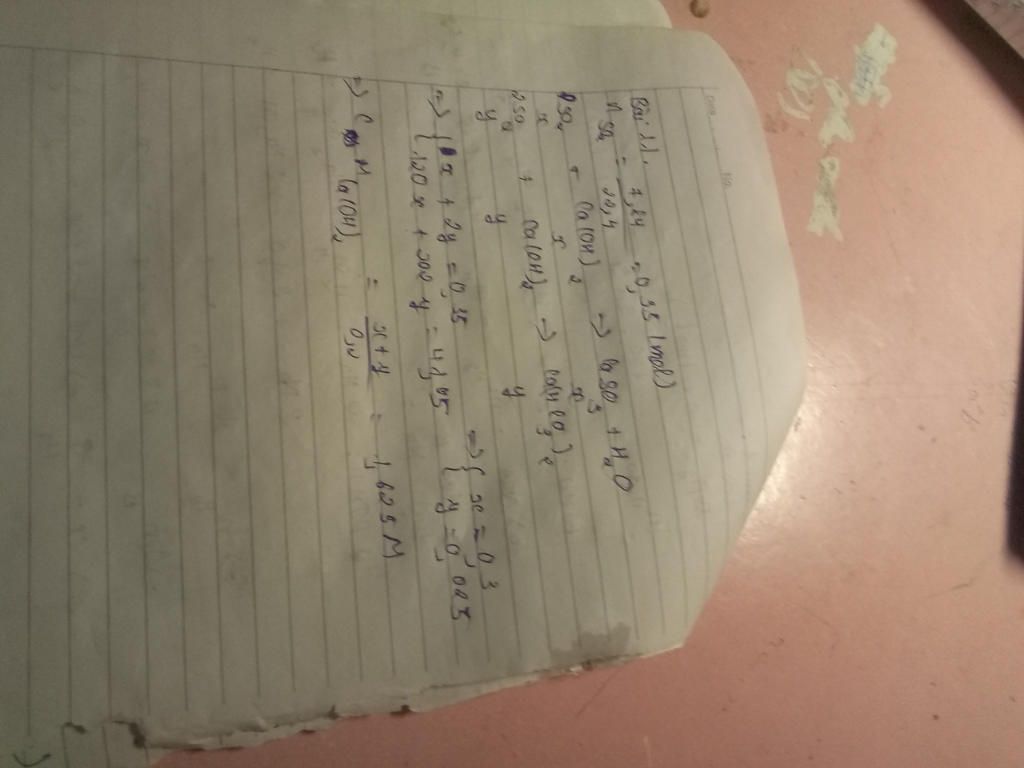 Date No.
Bài 11.
n SO2 = 7,84 / 22,4 = 0,35 (mol)
SO2 + Ca(OH)2 -> CaSO3 + H2O
x x x
2SO2 + Ca(OH)2 -> Ca(HSO3)2
y y y
=> { x + 2y = 0,35
120x + 202y = 41,05
=> { x = 0,3
y = 0,025
=> C M Ca(OH)2 = x+y / 0,2 = 1,625 M